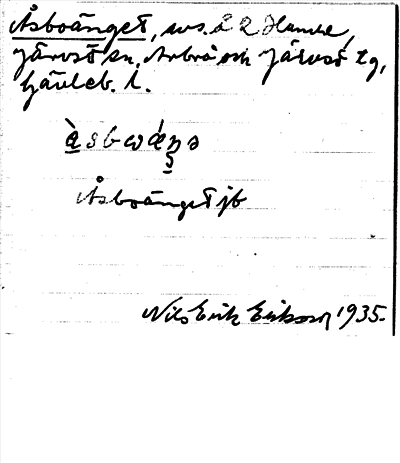 Åsboänget, avs. å 2 Hamre,
Järvsö sn, Arbrå och Järvsö tg,
Gävleb. l.
Åsboänget jb
Nils Erik Eriksson 1935.